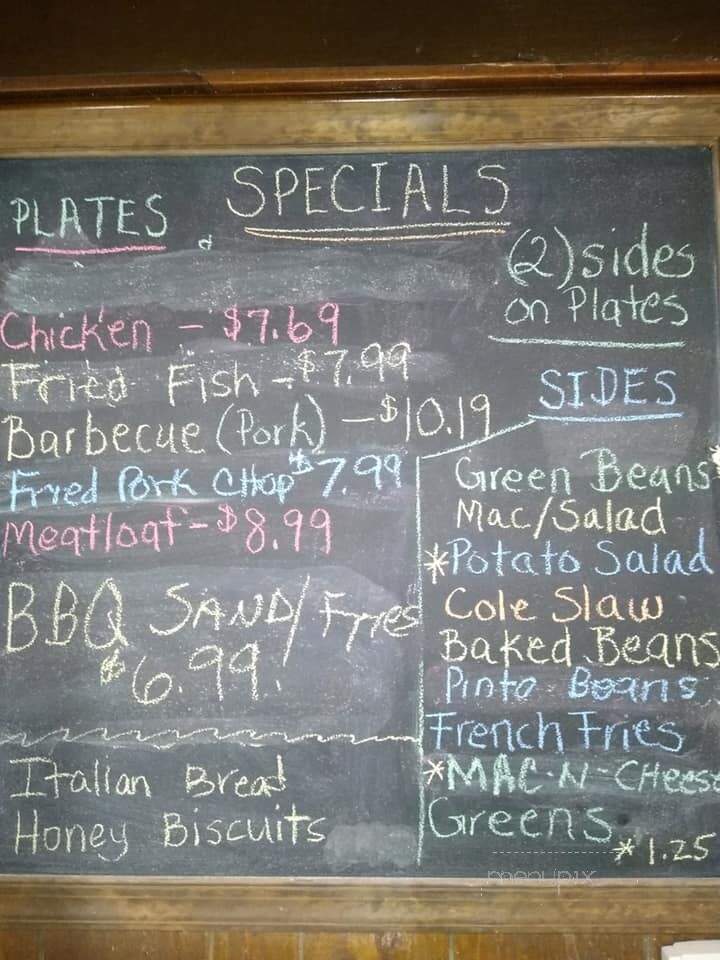 SPECIALS
PLATES
(2) sides
on Plates
Chicken - $7.69
Fried Fish - $7.99
Barbecue (Pork) - $10.19
Fried Pork Chop $7.99
Meatloaf - $8.99
BBQ SAND/Fries
$6.99
Italian Bread
Honey Biscuits
SIDES
Green Beans
Mac/Salad
*Potato Salad
Cole Slaw
Baked Beans
Pinto Beans
French Fries
*MAC-N-CHeese
Greens
*1.25
menupix